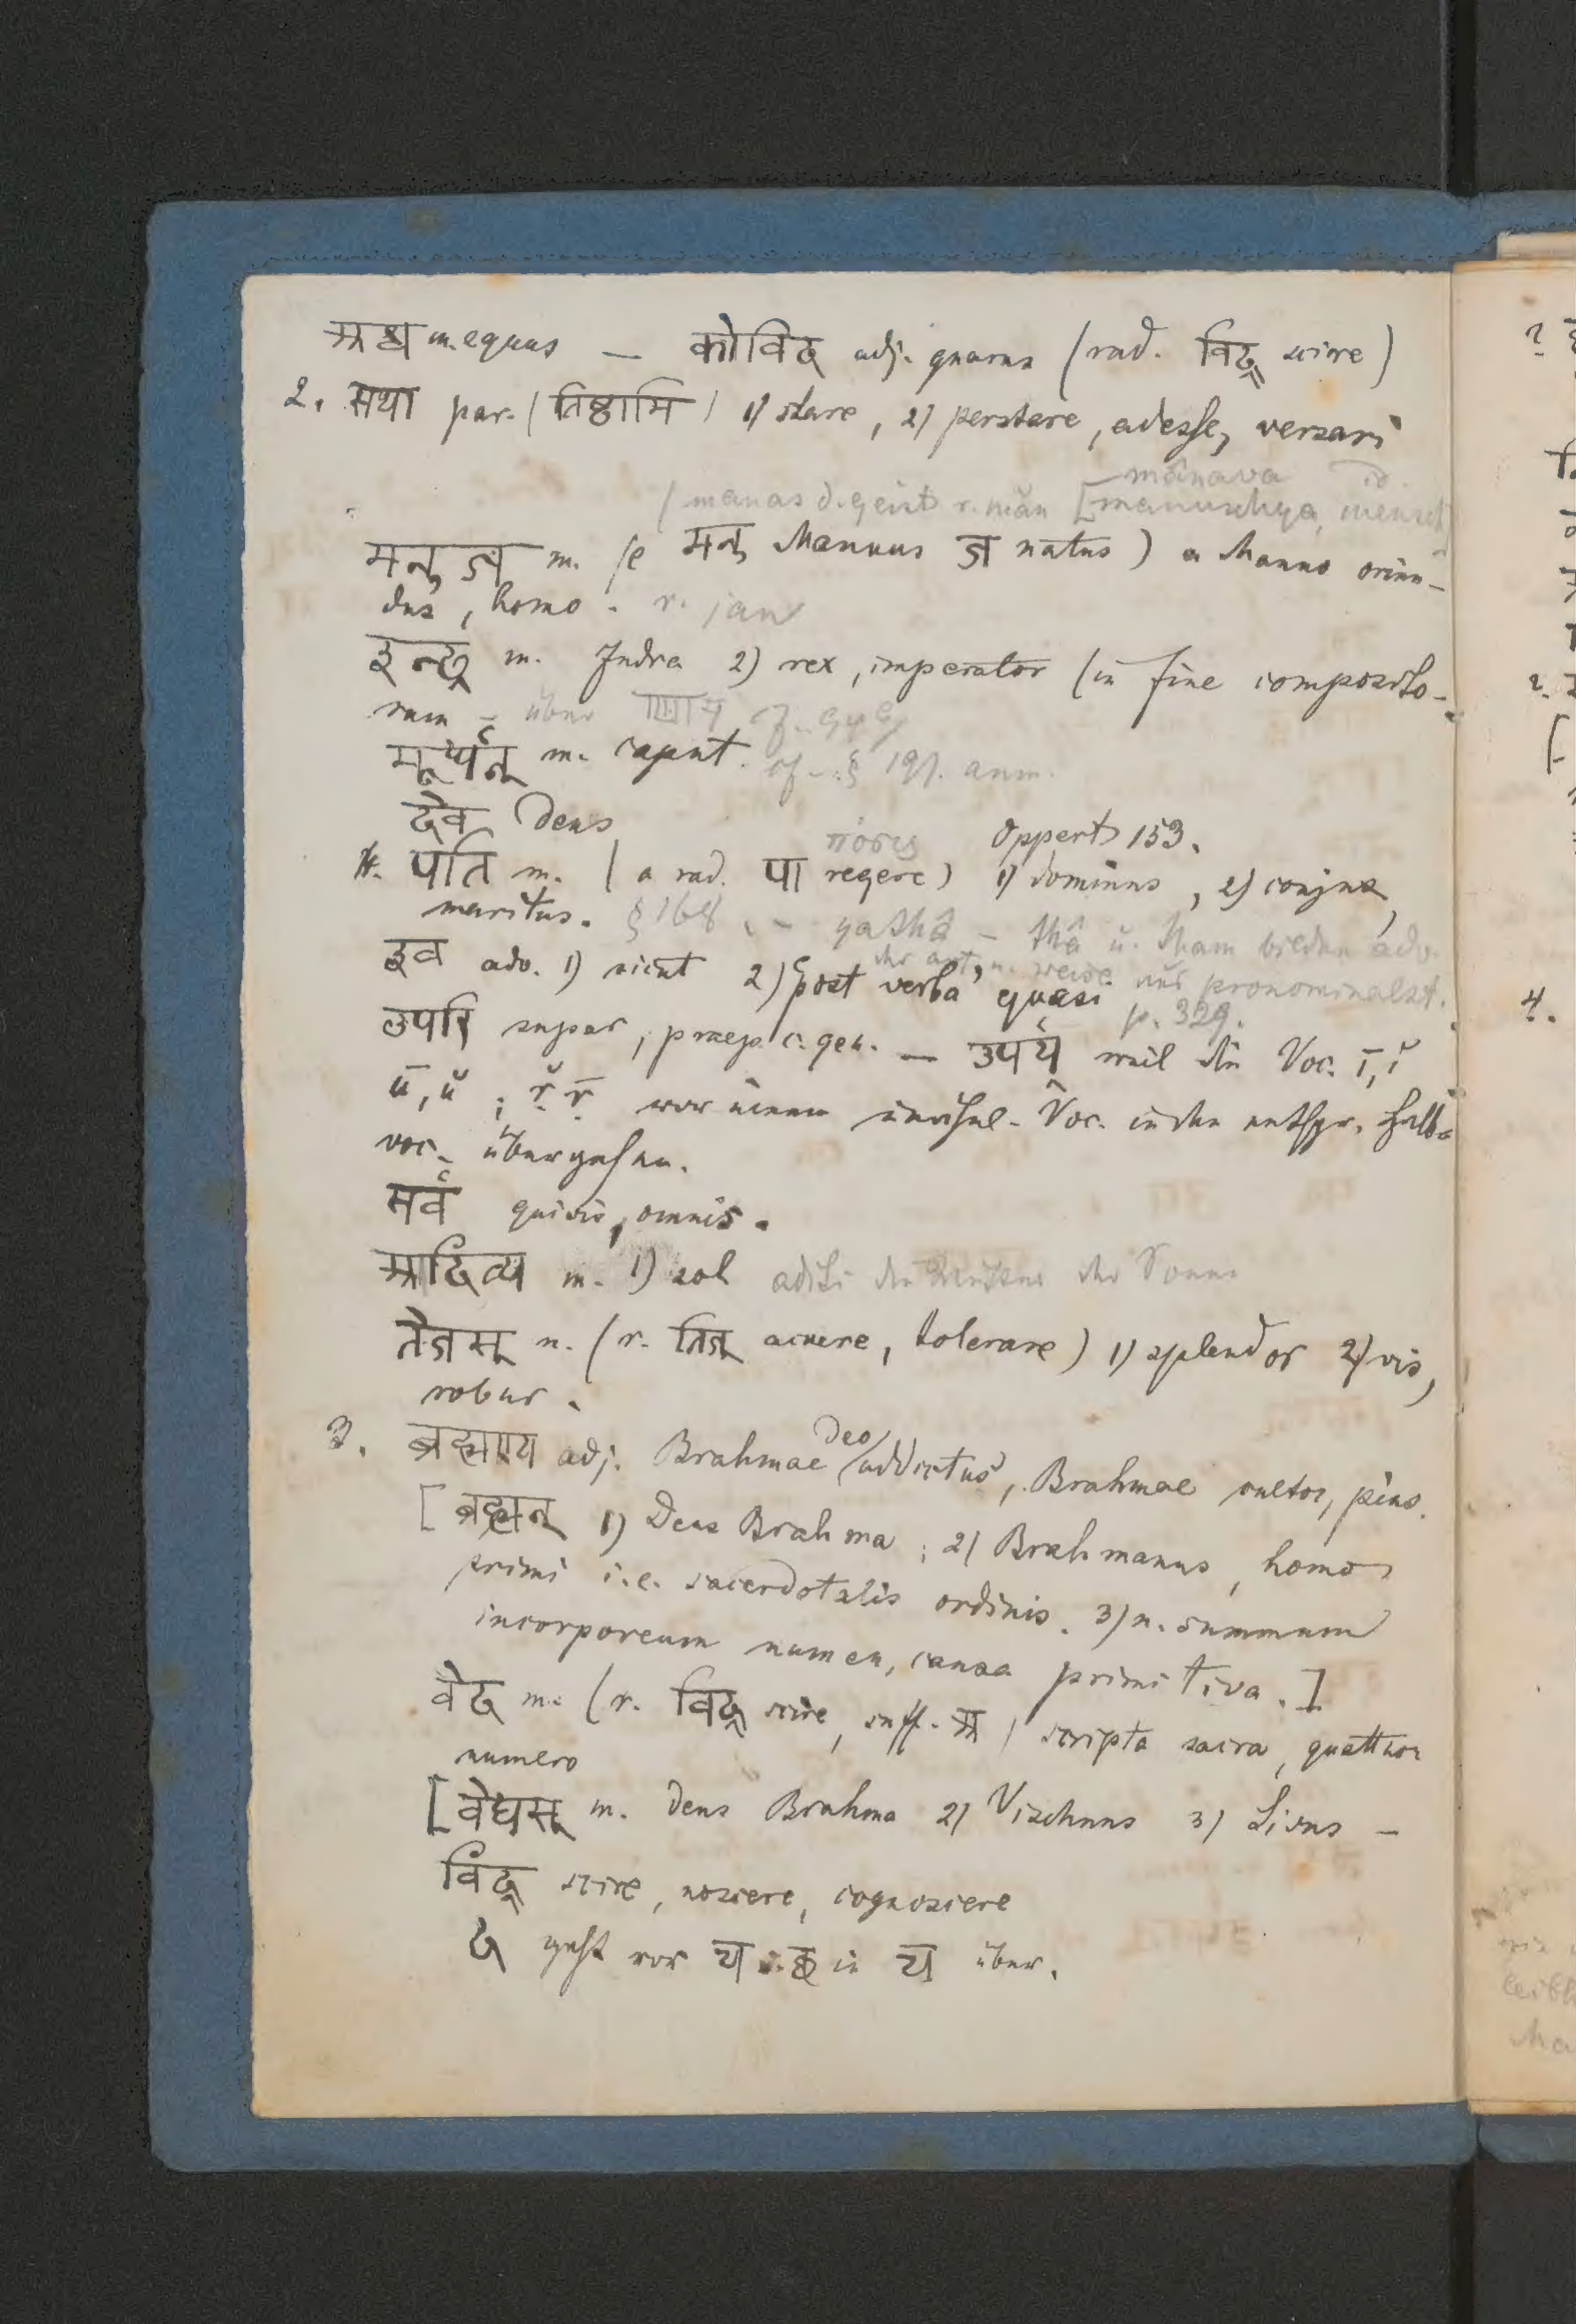 अश्व m. equus — कोविद adj. gnarus (rad. विद् scire)
2. स्था par. (तिष्ठामि) 1) stare, 2) perstare, adesse, versari
mânava id.
(manas d. geist r. man [manuschya, mensch
मनुज m. (e मनु Manus ज natus) a Manno oriun-
dus, homo. r. jan
इन्द्र m. Indra 2) rex, imperator (in fine composito-
rum – über
मूर्धन् m. caput. cf. § 191. anm.
देव deus
πόσις Oppert 153.
4. पति m. (a rad. पा regere) 1) dominus, 2) conjux,
maritus. § 168. – yathâ – thâ u. tham bilden adv.
der art u. weise aus pronominalst.
इव adv. 1) sicut 2) post verba, quasi p. 329.
उपरि super, praep. c. gen. — उपर्य weil die Voc. ī, ĭ
ū, ŭ; r̥̆ r̥̄ vor einem unähnl. Voc. in den entspr. Halb-
voc. übergehen.
सर्व quivis, omnis.
आदित्य m. 1) sol aditi der Sonne
तेजस् n. (r. तिज् acuere, tolerare) 1) splendor 2) vis,
robur.
3. ब्रह्मण्य adj. Brahmae deo addictus, Brahmae cultor, pius.
[ब्रह्मन् 1) Deus Brahma; 2) Brahmanus, homo
primi i.e. sacerdotalis ordinis. 3) n. summum
incorporeum numen, causa primitiva.]
वेद m. (r. विद् scire, suff. अ) scripta sacra, quattuor
numero
[वेधस् m. deus Brahma 2) Vischnus 3) Sivus –
विद् scire, noscere, cognoscere
geht vor in über.